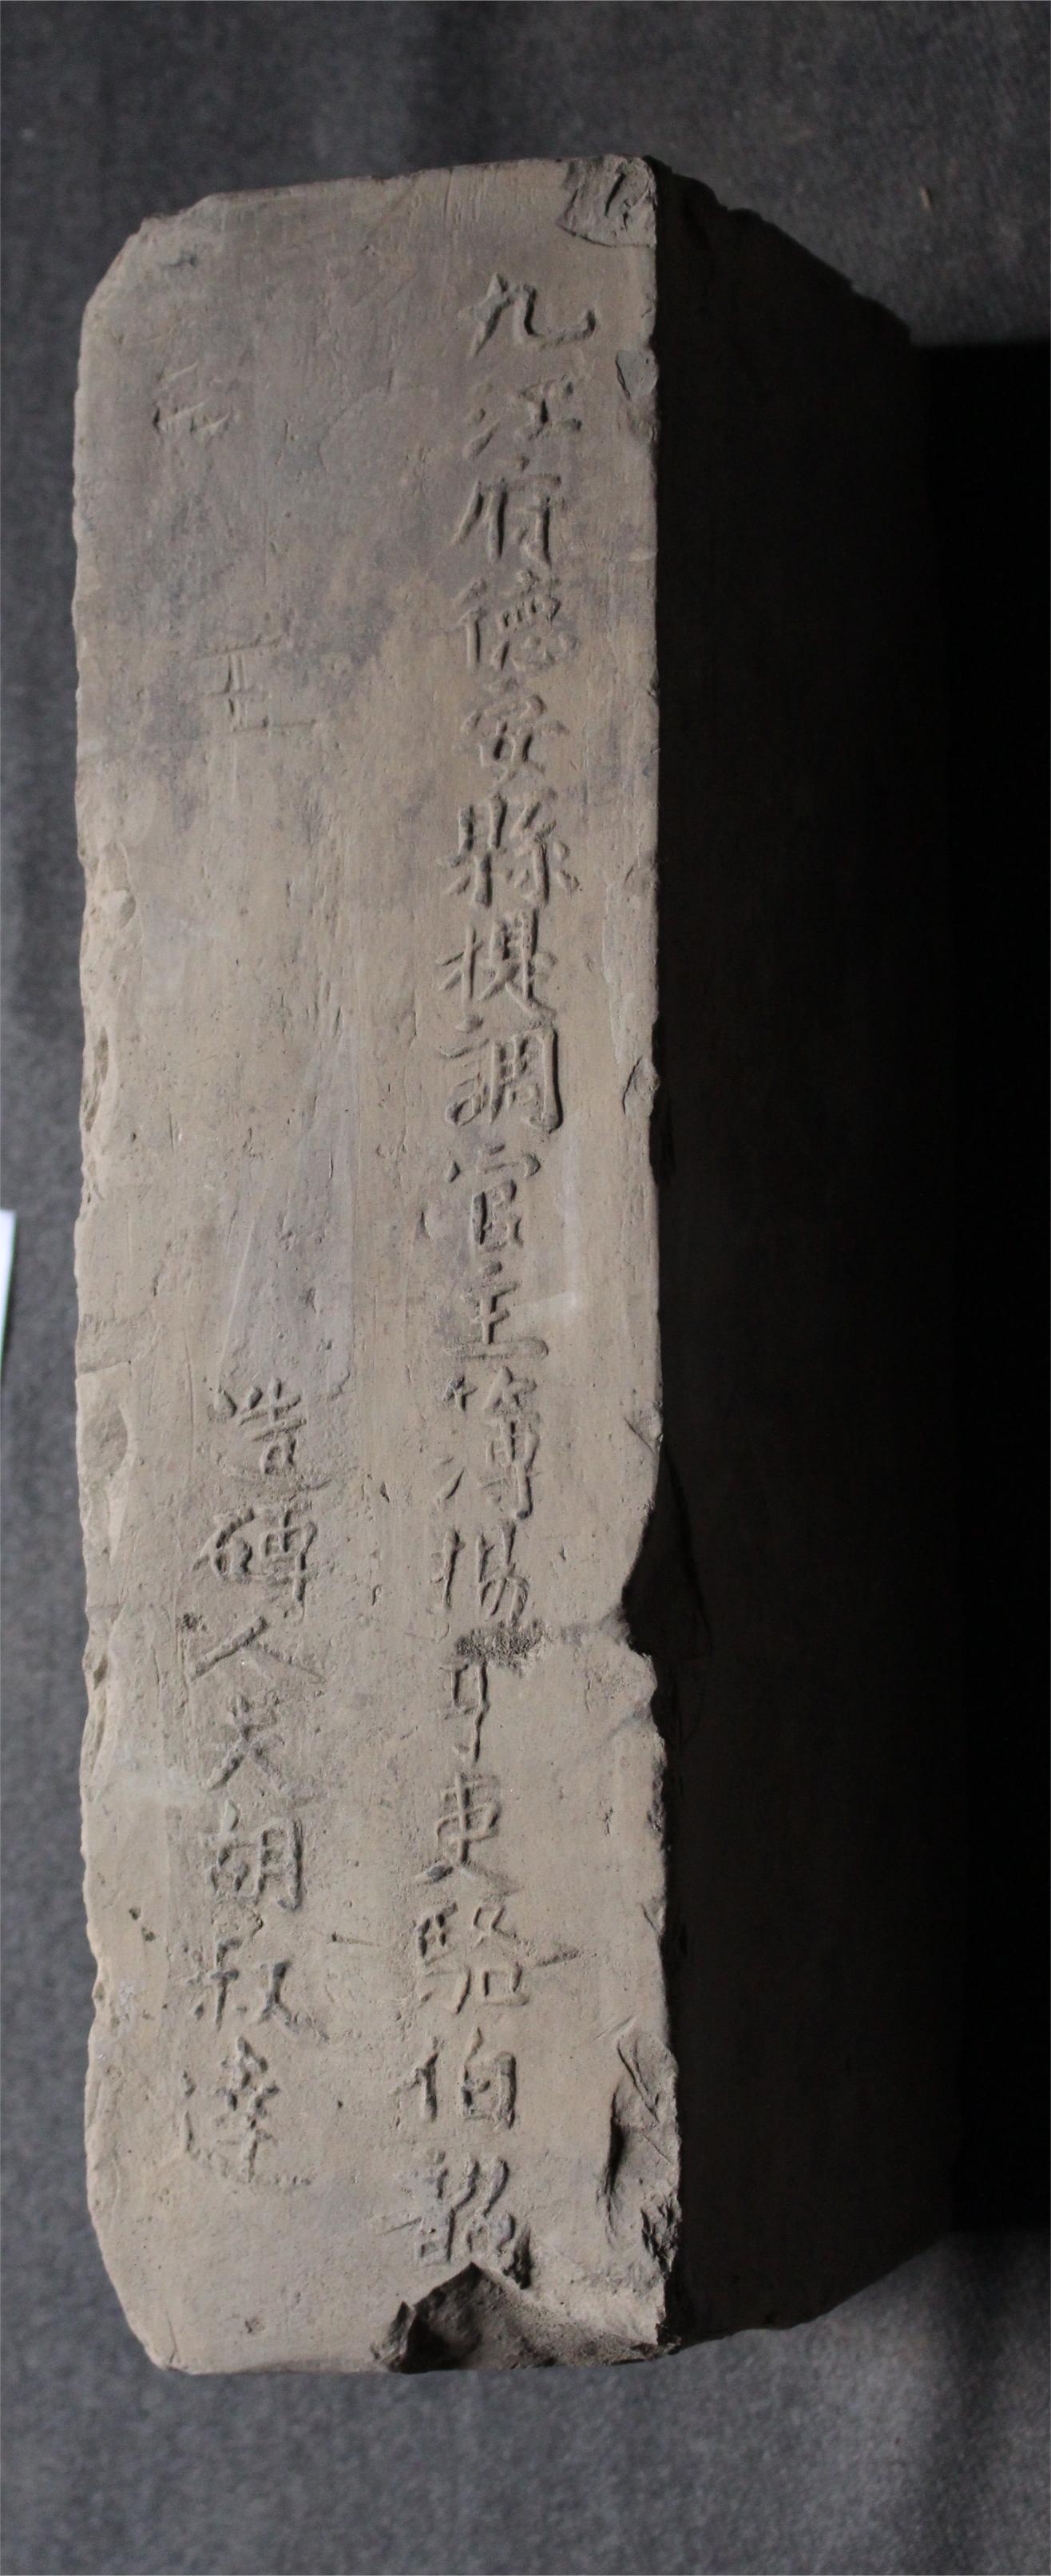 九江府德安縣提調官主簿楊亨吏駱伯韶
造磚人夫胡叔達